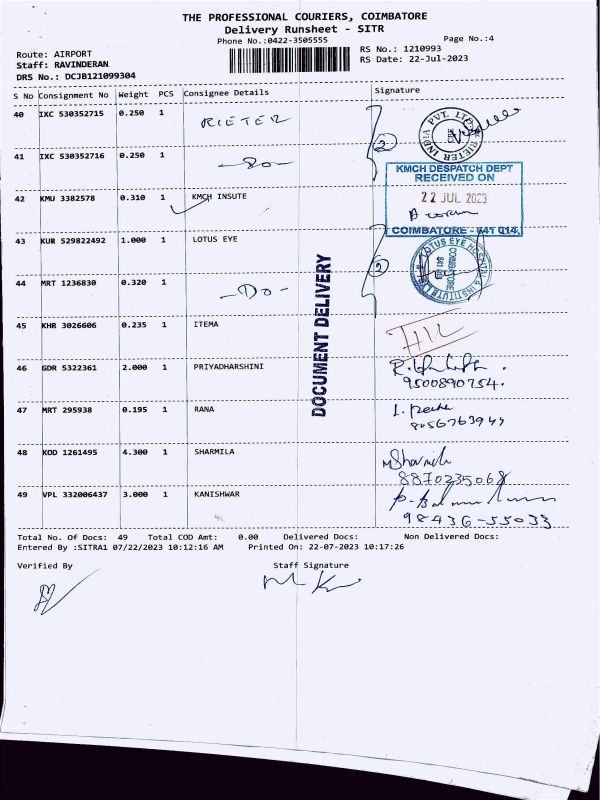 THE PROFESSIONAL COURIERS, COIMBATORE
Delivery Runsheet - SITR
Phone No.:0422-3505555
Page No.:4
Route: AIRPORT
RS No.: 1210993
Staff: RAVINDERAN
RS Date: 22-Jul-2023
DRS No.: DCJB121099304
S No Consignment No Weight PCS Consignee Details Signature
40 IXC 530352715 0.250 1 RIETER
41 IXC 530352716 0.250 1 -Do-
2
RIETER INDIA PVT. LTD.
KMCH DESPATCH DEPT
RECEIVED ON
22 JUL 2023
COIMBATORE - 641 014.
42 KMU 3382578 0.310 1 KMCH INSUTE
43 KUR 529822492 1.000 1 LOTUS EYE
44 MRT 1236830 0.320 1 -Do-
2
LOTUS EYE HOSPITAL & INSTITUTE
COIMBATORE
641
DOCUMENT DELIVERY
45 KHR 3026606 0.235 1 ITEMA
46 GDR 5322361 2.000 1 PRIYADHARSHINI
9500890754.
47 MRT 295938 0.195 1 RANA
8056763949
48 KOD 1261495 4.300 1 SHARMILA
Sharmila
8870235068
49 VPL 332006437 3.000 1 KANISHWAR
98436-55033
Total No. Of Docs: 49 Total COD Amt: 0.00 Delivered Docs: Non Delivered Docs:
Entered By :SITRA1 07/22/2023 10:12:16 AM Printed On: 22-07-2023 10:17:26
Verified By Staff Signature